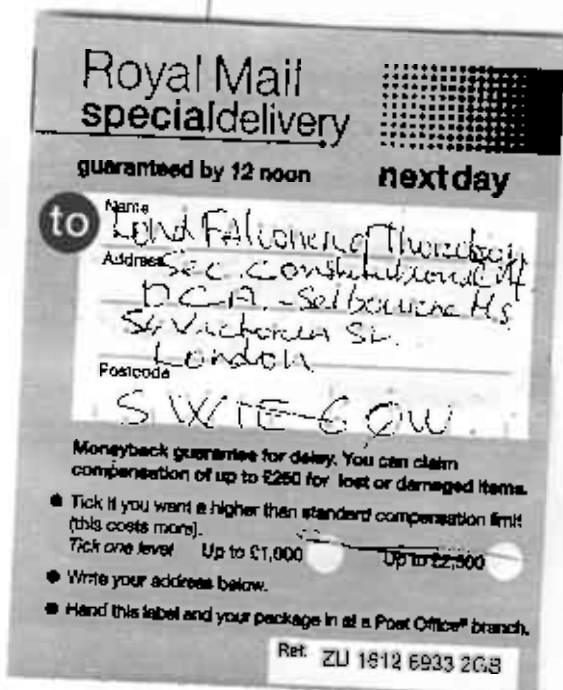 Royal Mail
specialdelivery
guaranteed by 12 noon
nextday
to
Name
Lord Falconer of Thoroton
Address
Sec. Constitutional Aff
D.C.A. - Selbourne Hs
54 Victoria St.
London
Postcode
SW1E-6QW
Moneyback guarantee for delay. You can claim
compensation of up to £250 for lost or damaged items.
Tick if you want a higher than standard compensation limit
(this costs more).
Tick one level Up to £1,000 Up to £2,500
Write your address below.
Hand this label and your package in at a Post Office® branch.
Ref. ZU 1612 6933 2GB